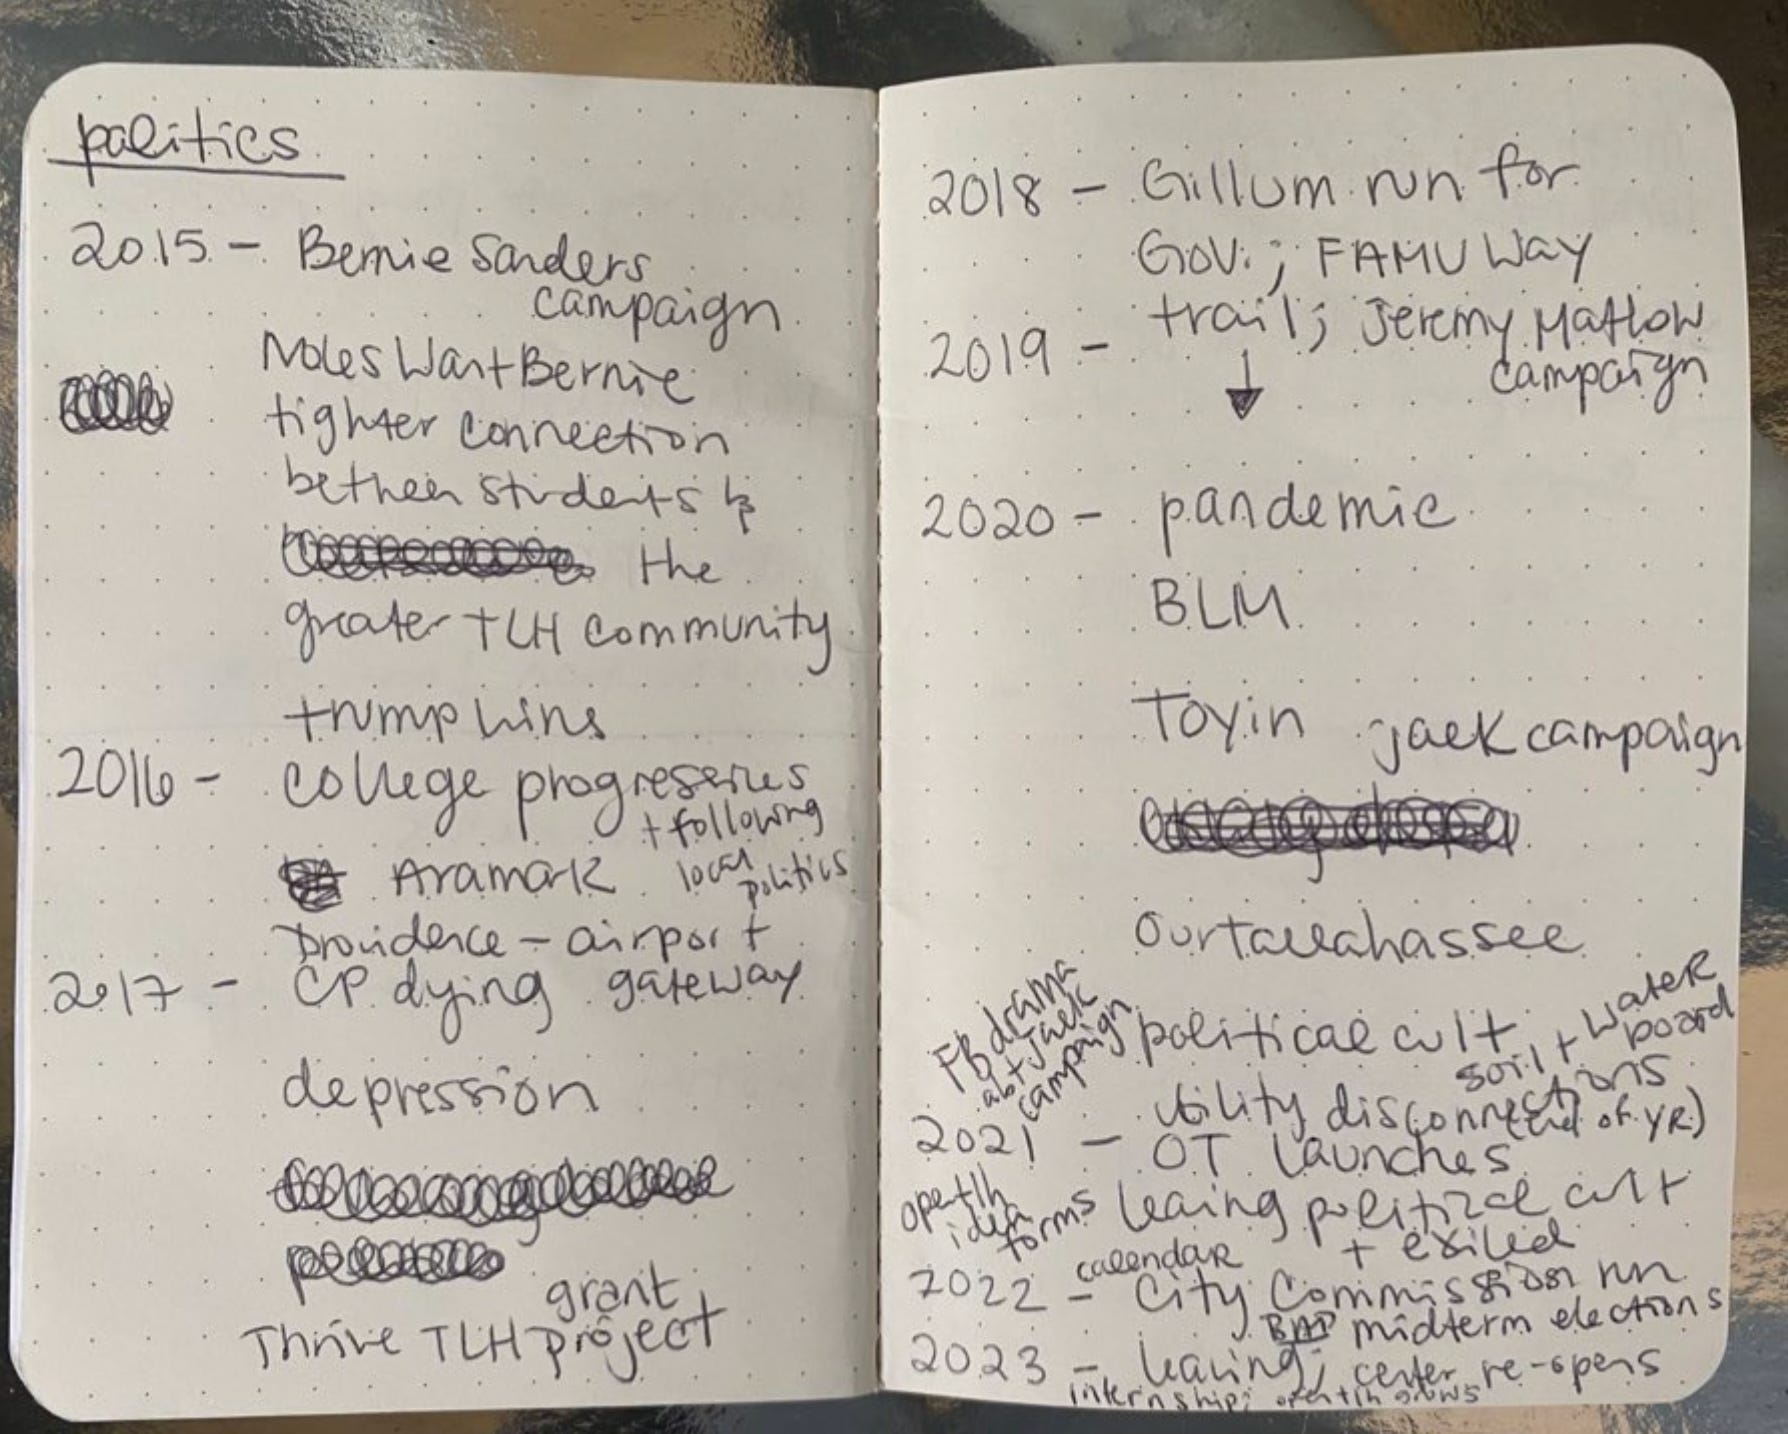 politics
2015 - Bernie Sanders
campaign
Noles Want Bernie
tighter connection
between students &
the
greater TLH community
trump wins
2016 - college progressives
+ following
Aramark local
politics
Providence - airport
2017 - CP dying gateway
depression
grant
Thrive TLH project
2018 - Gillum run for
Gov.; FAMU Way
trail; Jeremy Matlow
2019 - campaign
2020 - pandemic
BLM
Toyin jack campaign
Ourtallahassee
FB drama
abt jack
campaign
political cult
soil + water
board
utility disconnections
(end of yr)
2021 - OT launches
opentlh
idea
forms
leaving political cult
+ exiled
calendar
2022 - City Commission run
BAP midterm elections
2023 - leaving; center re-opens
internship; opentlh grows